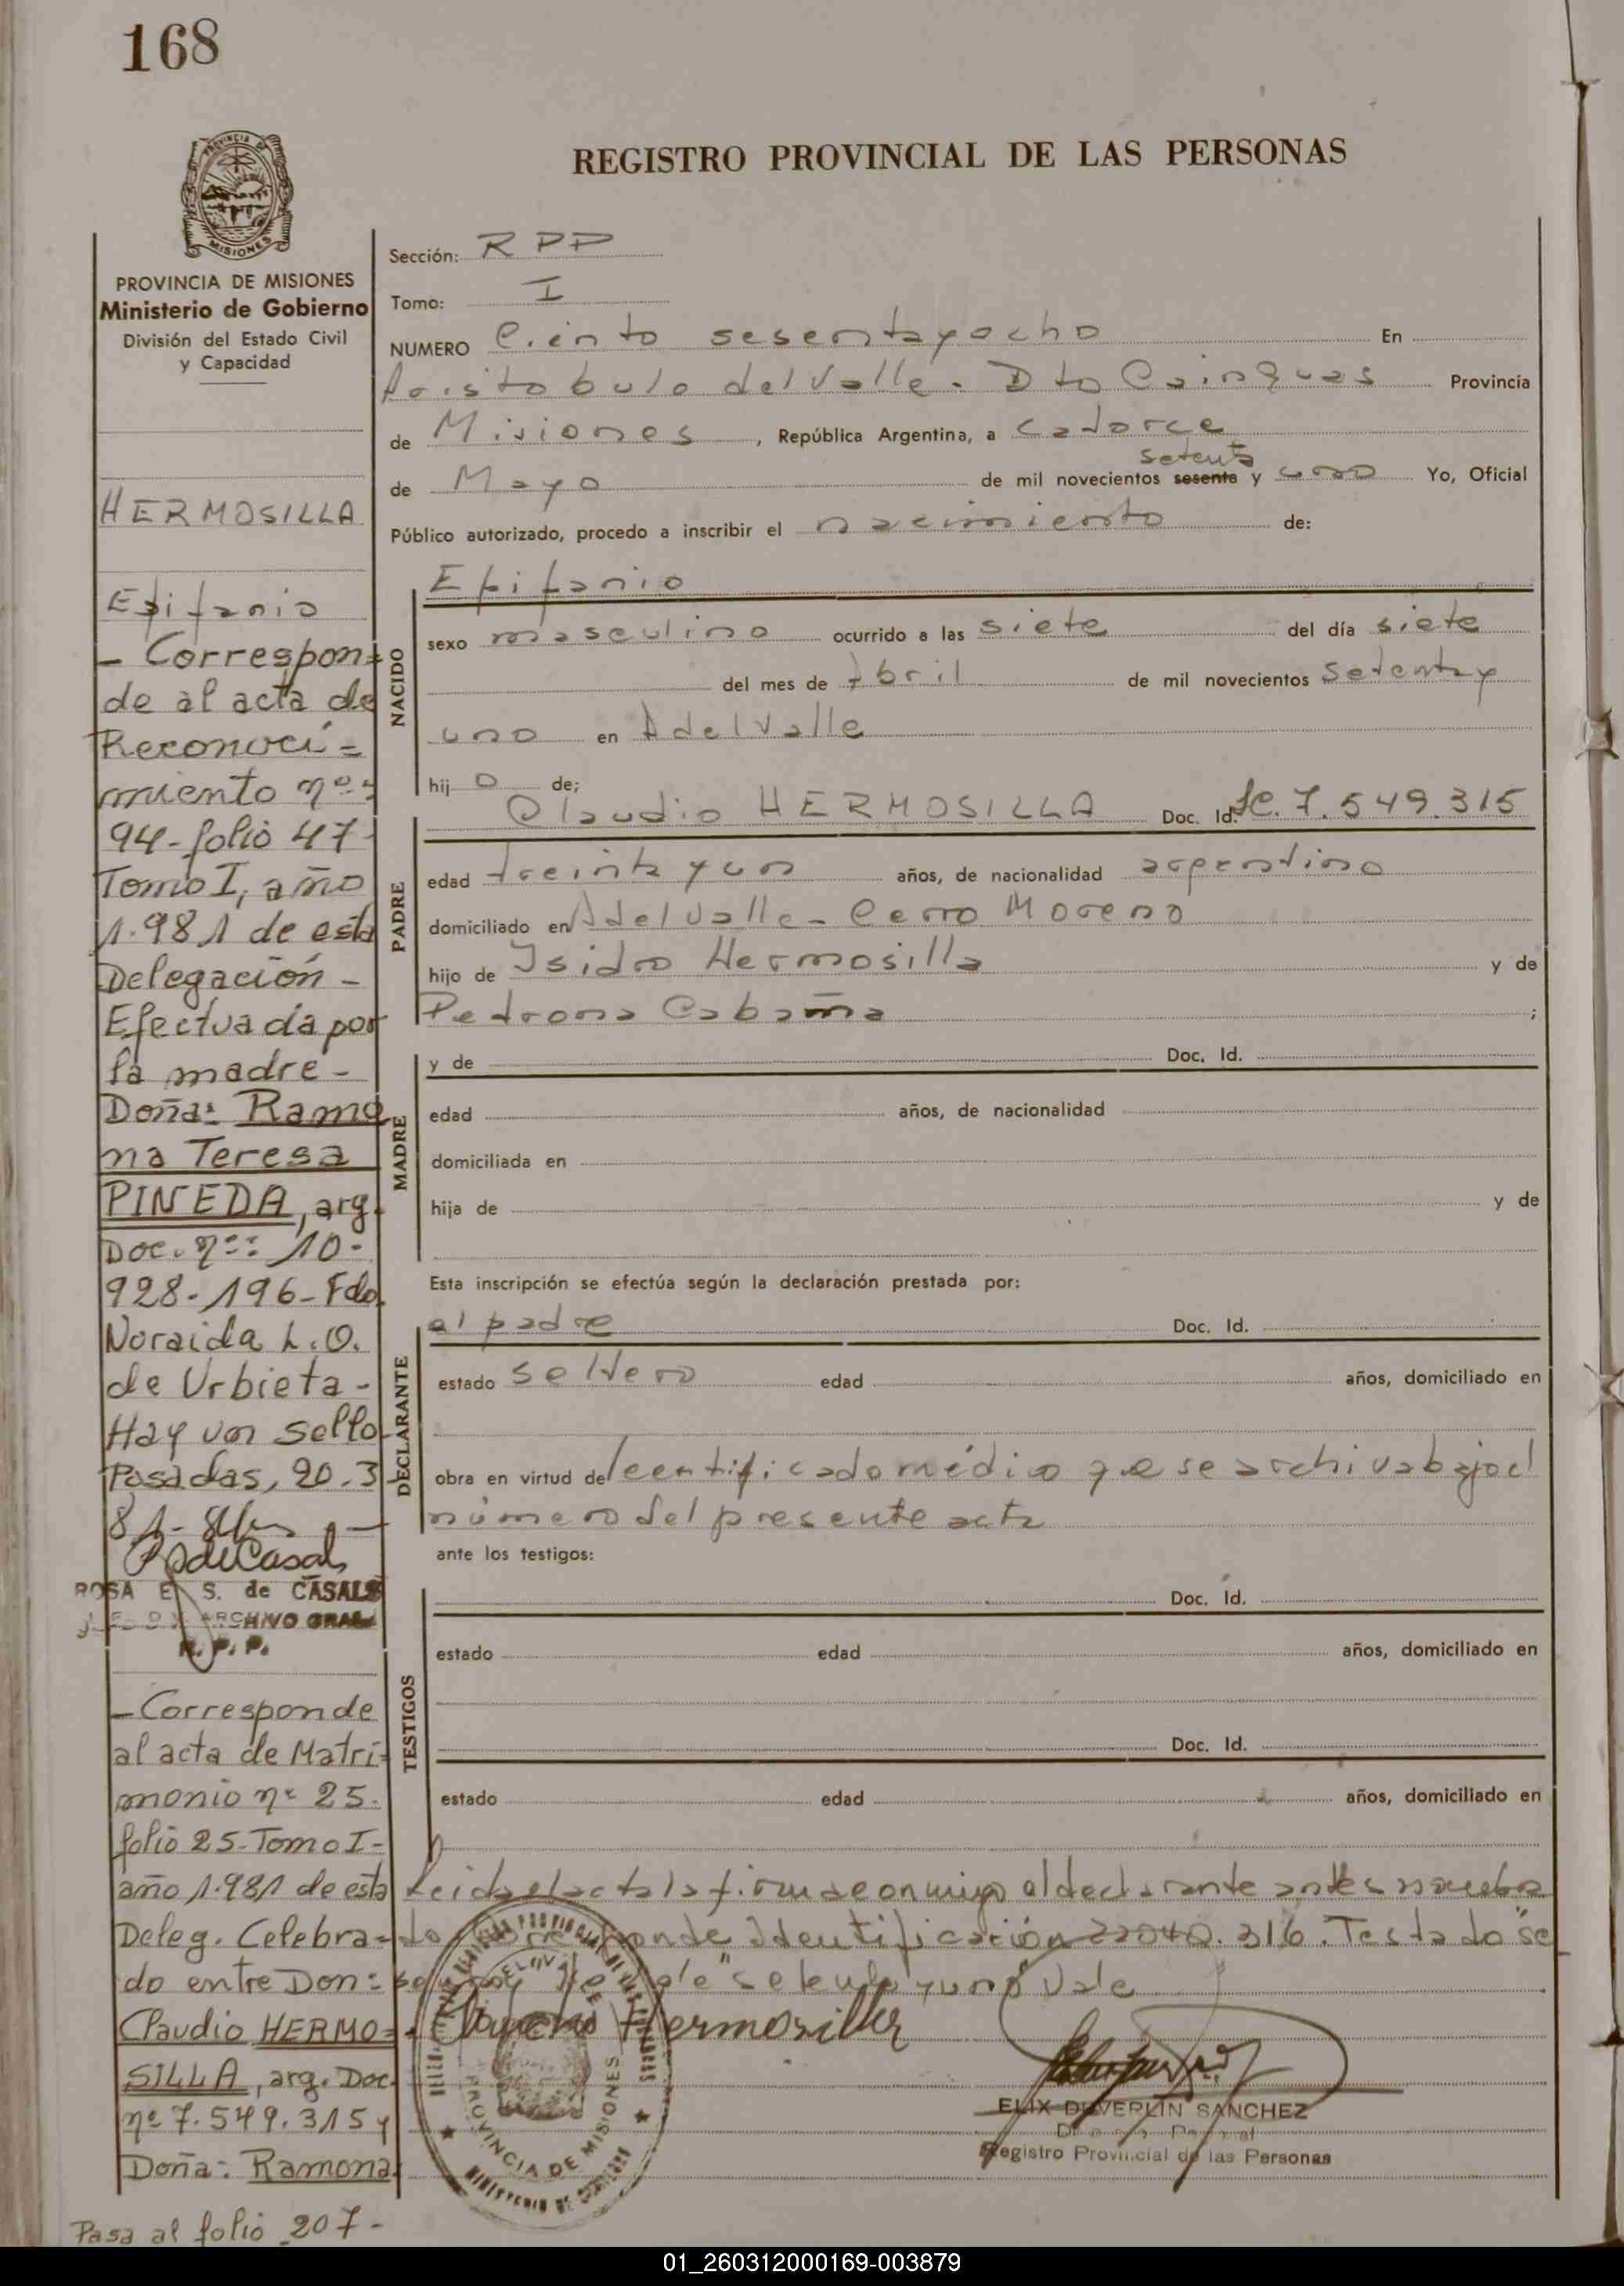 168
REGISTRO PROVINCIAL DE LAS PERSONAS
PROVINCIA DE
MISIONES
PROVINCIA DE MISIONES
Ministerio de Gobierno
División del Estado Civil
y Capacidad
HERMOSILLA
Epifanio
- Correspon=
de al acta de
Reconoci=
miento nº:
94-folio 47
Tomo I, año
1.981 de esta
Delegación -
Efectuada por
la madre -
Doña: Ramo
na Teresa
PINEDA, arg.
Doc. nº: 10-
928-196-Fdo.
Noraida L.O.
de Urbieta -
Hay un sello
Posadas, 20.3
81-
ROSA E. S. de CASALS
ARCHIVO GRAL
R. P. P.
- Corresponde
al acta de Matri=
monio nº 25.
folio 25-Tomo I-
año 1.981 de esta
Deleg. Celebra=
do entre Don:
Claudio HERMO=
SILLA, arg. Doc.
nº 7.549.315 y
Doña: Ramona
Pasa al folio 207-
Sección: RPP
Tomo: I
NUMERO Ciento sesentayocho En
Aristobulo del Valle. Dto Cainguas Provincia
de Misiones, República Argentina, a catorce
setenta
de Mayo de mil novecientos sesenta y uno Yo, Oficial
Público autorizado, procedo a inscribir el nacimiento de:
NACIDO
Epifanio
sexo masculino ocurrido a las siete del día siete
del mes de Abril de mil novecientos setentay
uno en A del Valle
hij o de;
PADRE
Claudio HERMOSILLA Doc. Id. 7.549.315
edad treinta y un años, de nacionalidad argentino
domiciliado en A del Valle - Cerro Moreno
hijo de Isidro Hermosilla y de
Pedrona Cabaña ;
MADRE
y de Doc. Id.
edad años, de nacionalidad
domiciliada en
hija de y de
Esta inscripción se efectúa según la declaración prestada por:
DECLARANTE
el padre Doc. Id.
estado soltero edad años, domiciliado en
obra en virtud del certificado médico que se archiva bajo el
número del presente acta
ante los testigos:
TESTIGOS
Doc. Id.
estado edad años, domiciliado en
Doc. Id.
estado edad años, domiciliado en
Leida el acta la firma conmigo el declarante antes nombra
do Corresponde Identificación 316. Testado "se
"setenta y uno" Vale
Claudio Hermosilla
PROVINCIA DE MISIONES
ELIX DUVERLIN SANCHEZ
Registro Provincial de las Personas
01_260312000169-003879